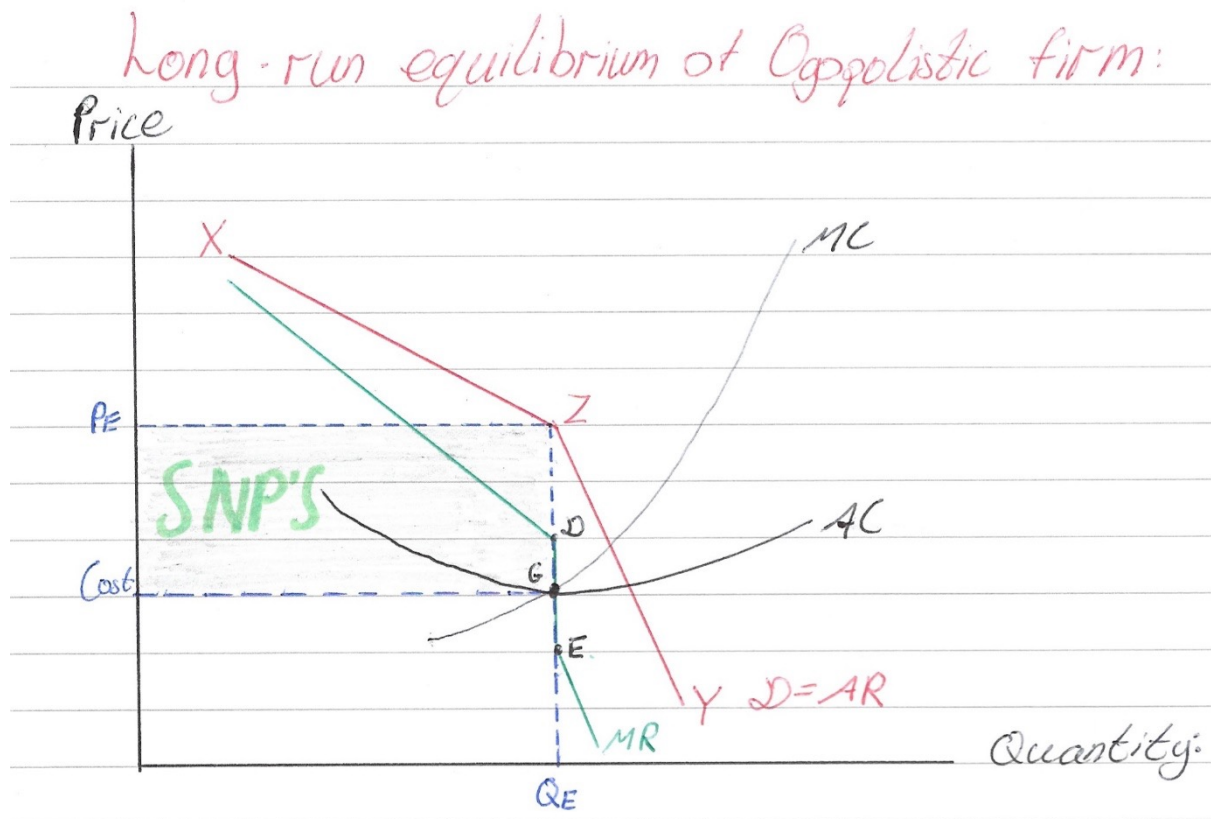 Long-run equilibrium of Ogopolistic firm:
Price
X
MC
PE
Z
SNP'S
D
AC
G
Cost
E
Y D=AR
MR
Quantity:
QE